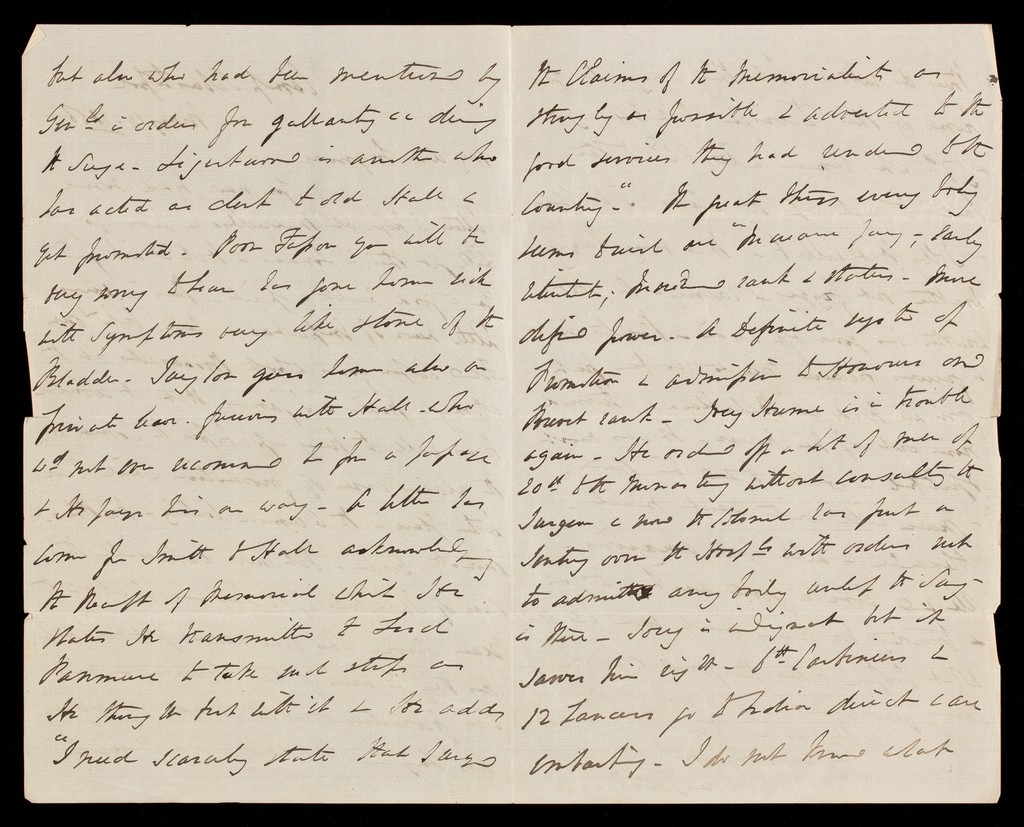 but also who had been mentioned by
Genls in orders for gallantry &c during
the Siege - Lightward is another who
has acted as clerk to old Hall &
got promoted - Poor you will be
very sorry to hear has gone home sick
with symptoms very like stone of the
Bladder - Taylor goes home also on
private leave. furious with Hall - who
wd not even recommend him for a passage
& he pays his own way - A letter has
come fm Smith to Hall acknowledging
the Receipt of Memorial which he
states he transmitted to Lord
Panmure to take such steps as
he thought best with it & he adds
"I need scarcely state that I urged
the Claims of the Memorialists as
strongly as possible & adverted to the
good services they had rendered to the
Country". The great things every body
seems to wish are "Increase pay -, Early
retirement; Increased rank & status - More
defined power - A Definite system of
Promotion & admission to Honours and
Brevet rank - Joey Hume is in trouble
again - He ordered off a lot of men of
20th to the Monastery without consulting the
Surgeon & now the Colonel has put a
Sentry over the Hospls with orders not
to admit any body unless the Surg-
is there - Joey is indignant but it
serves him right - 6th Carbineers &
12 Lancers go to India direct & are
embarking - I do not know what